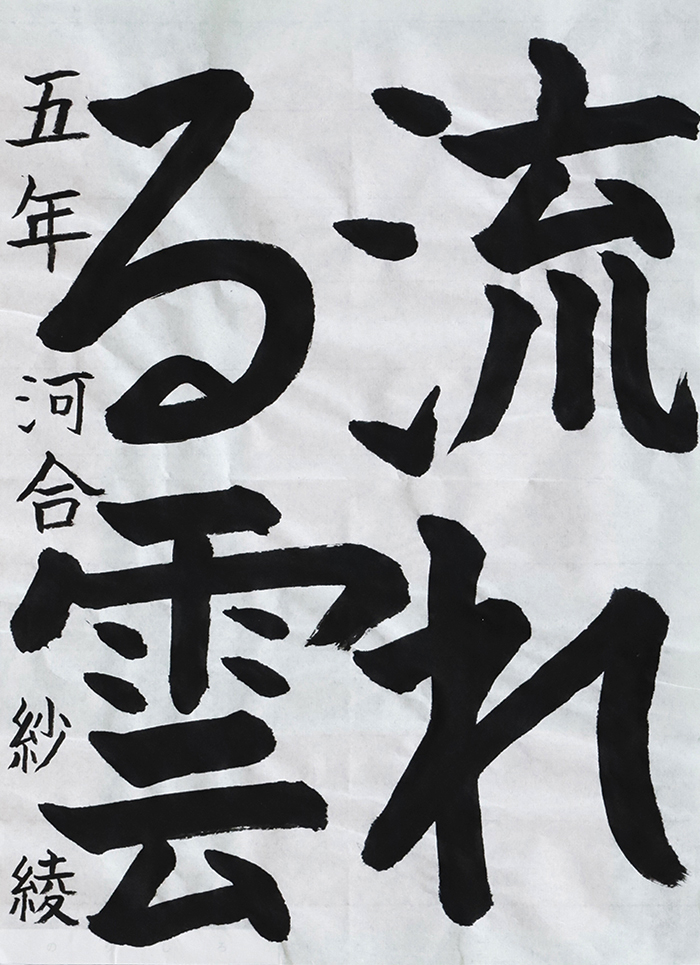 流れ
る雲
五年 河合 紗綾